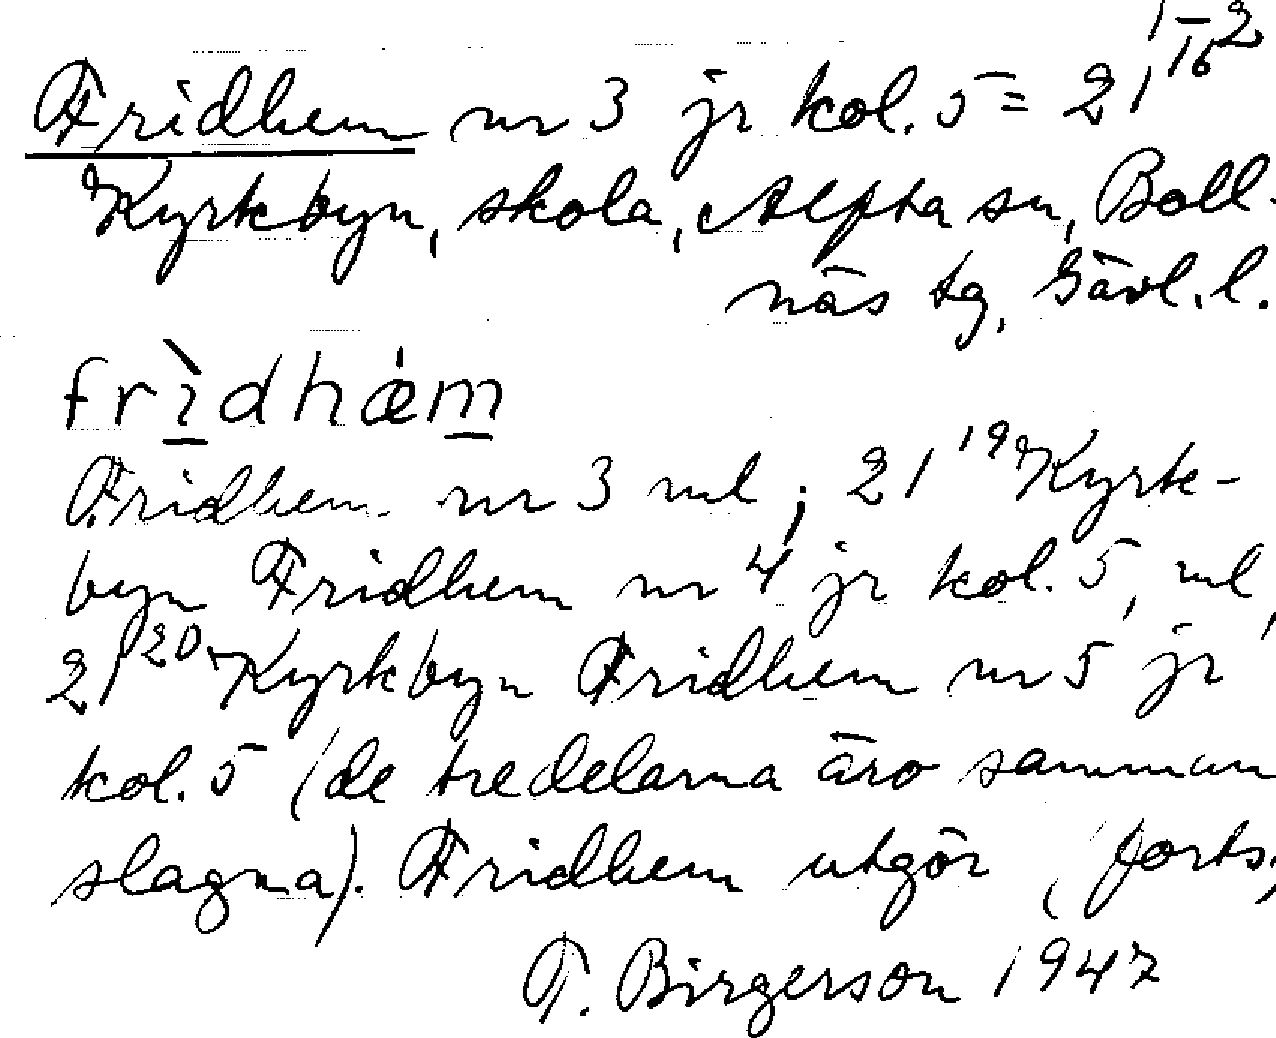 1–2
Fridhem nr 3 jr kol. 5 = 21¹⁶
Kyrkbyn, skola, Alfta sn, Boll-
näs tg, Gävl. l.
frìdhǽm
Fridhem nr 3 ml; 21¹⁹ Kyrk-
byn Fridhem nr 4 jr kol. 5, ml,
21²⁰ Kyrkbyn Fridhem nr 5 jr
kol. 5 (de tre delarna äro samman
slagna). Fridhem utgör (forts;
T. Birgerson 1947